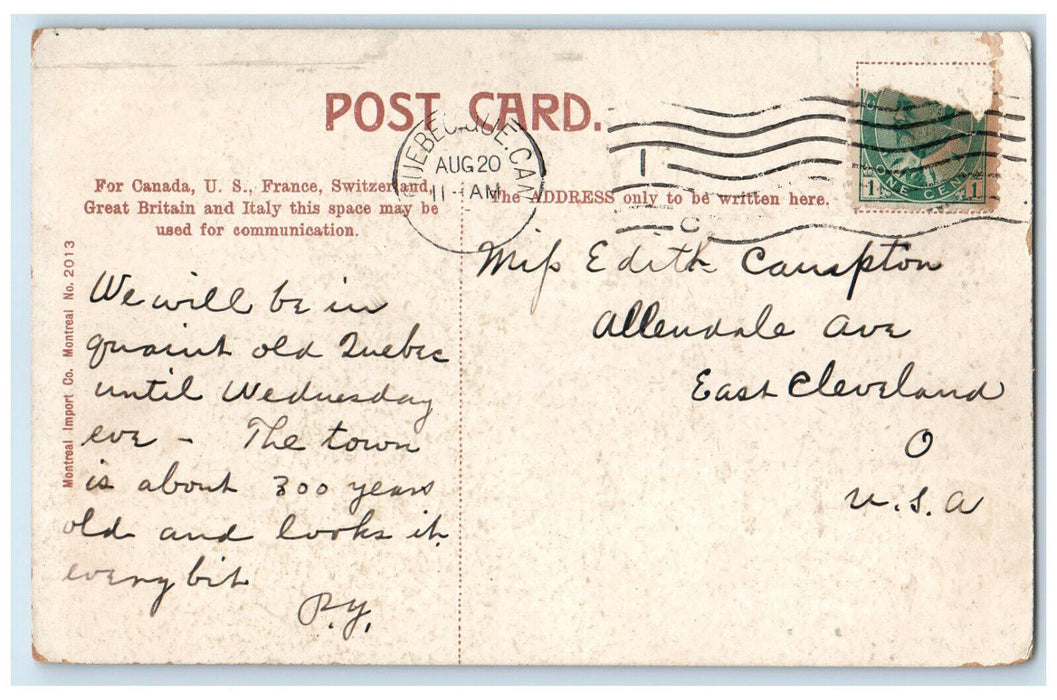 POST CARD.
QUEBEC, QUE. CAN
AUG 20
11 - AM
For Canada, U. S., France, Switzerland,
Great Britain and Italy this space may be
used for communication.
The ADDRESS only to be written here.
1 ONE CENT 1
Montreal Import Co. Montreal No. 2013
We will be in
quaint old Quebec
until Wednesday
eve - The town
is about 300 years
old and looks it
every bit
P.Y.
Miss Edith
Allendale Ave
East Cleveland
O
U.S.A